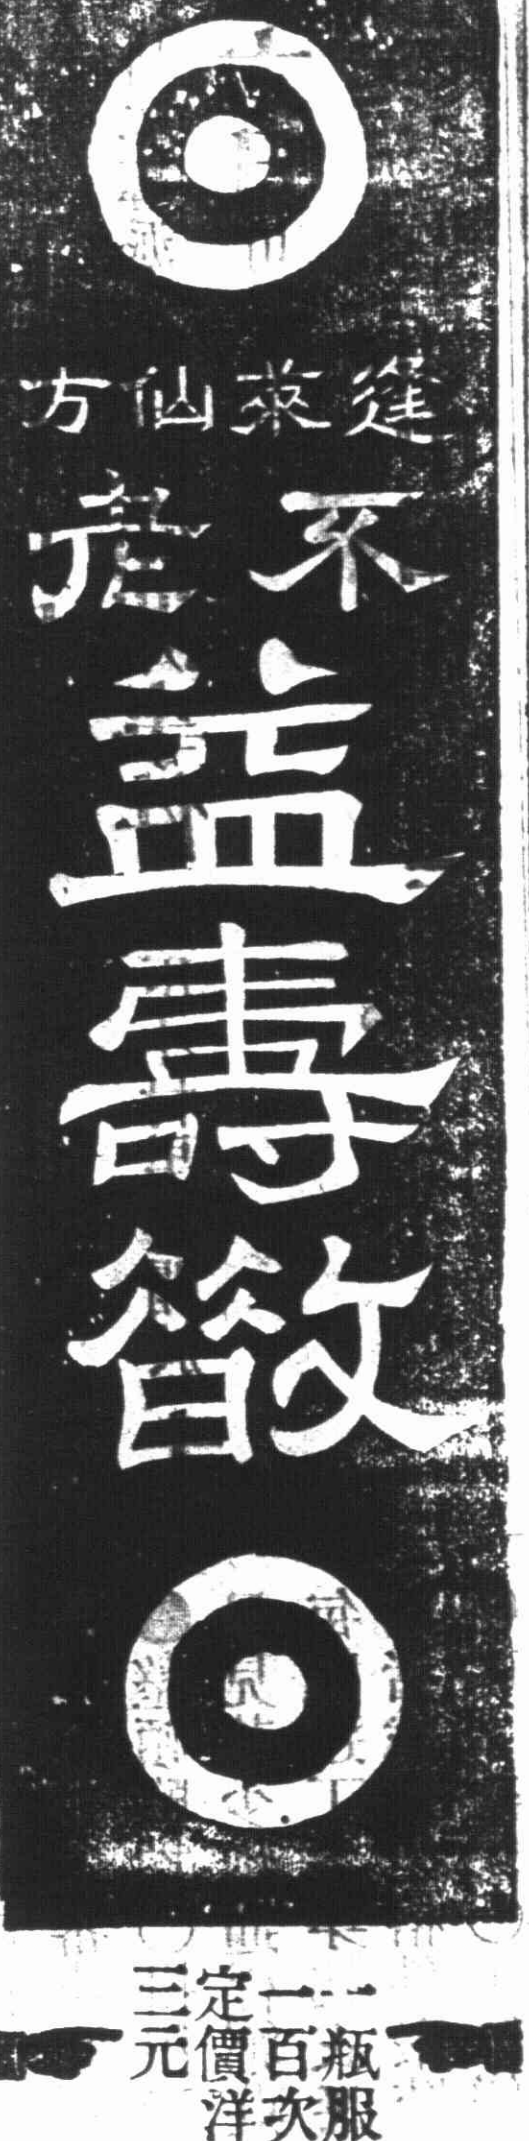 蓬萊仙方
不老
益壽散
一瓶服
一百次
定價洋
三元